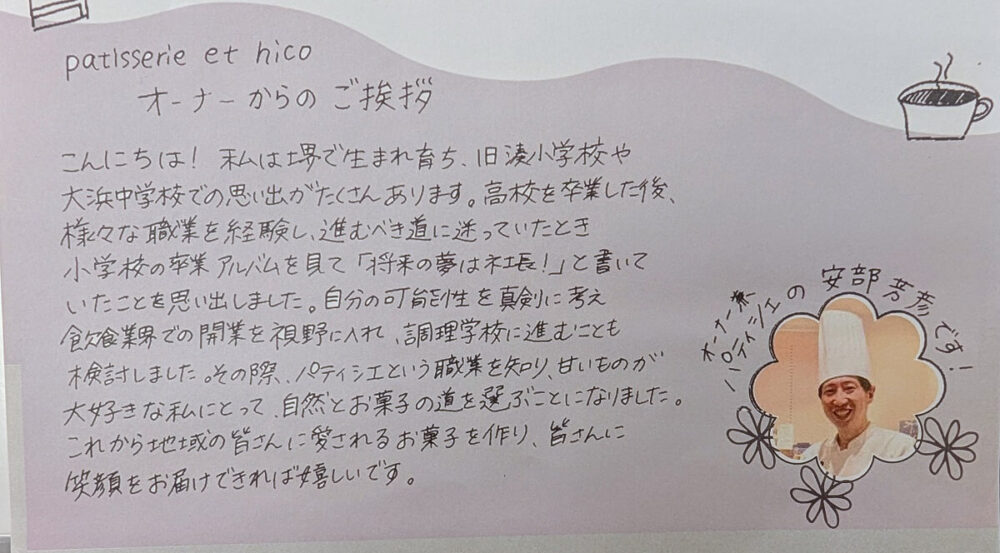 patisserie et nico
オーナーからのご挨拶
こんにちは！ 私は堺で生まれ育ち、旧湊小学校や
大浜中学校での思い出がたくさんあります。高校を卒業した後、
様々な職業を経験し、進むべき道に迷っていたとき
小学校の卒業アルバムを見て「将来の夢は社長！」と書いて
いたことを思い出しました。自分の可能性を真剣に考え
飲食業界での開業を視野に入れ、調理学校に進むことも
検討しました。その際、パティシエという職業を知り、甘いものが
大好きな私にとって、自然とお菓子の道を選ぶことになりました。
これから地域の皆さんに愛されるお菓子を作り、皆さんに
笑顔をお届けできれば嬉しいです。
オーナー兼
パティシエの 安部芳彦です！